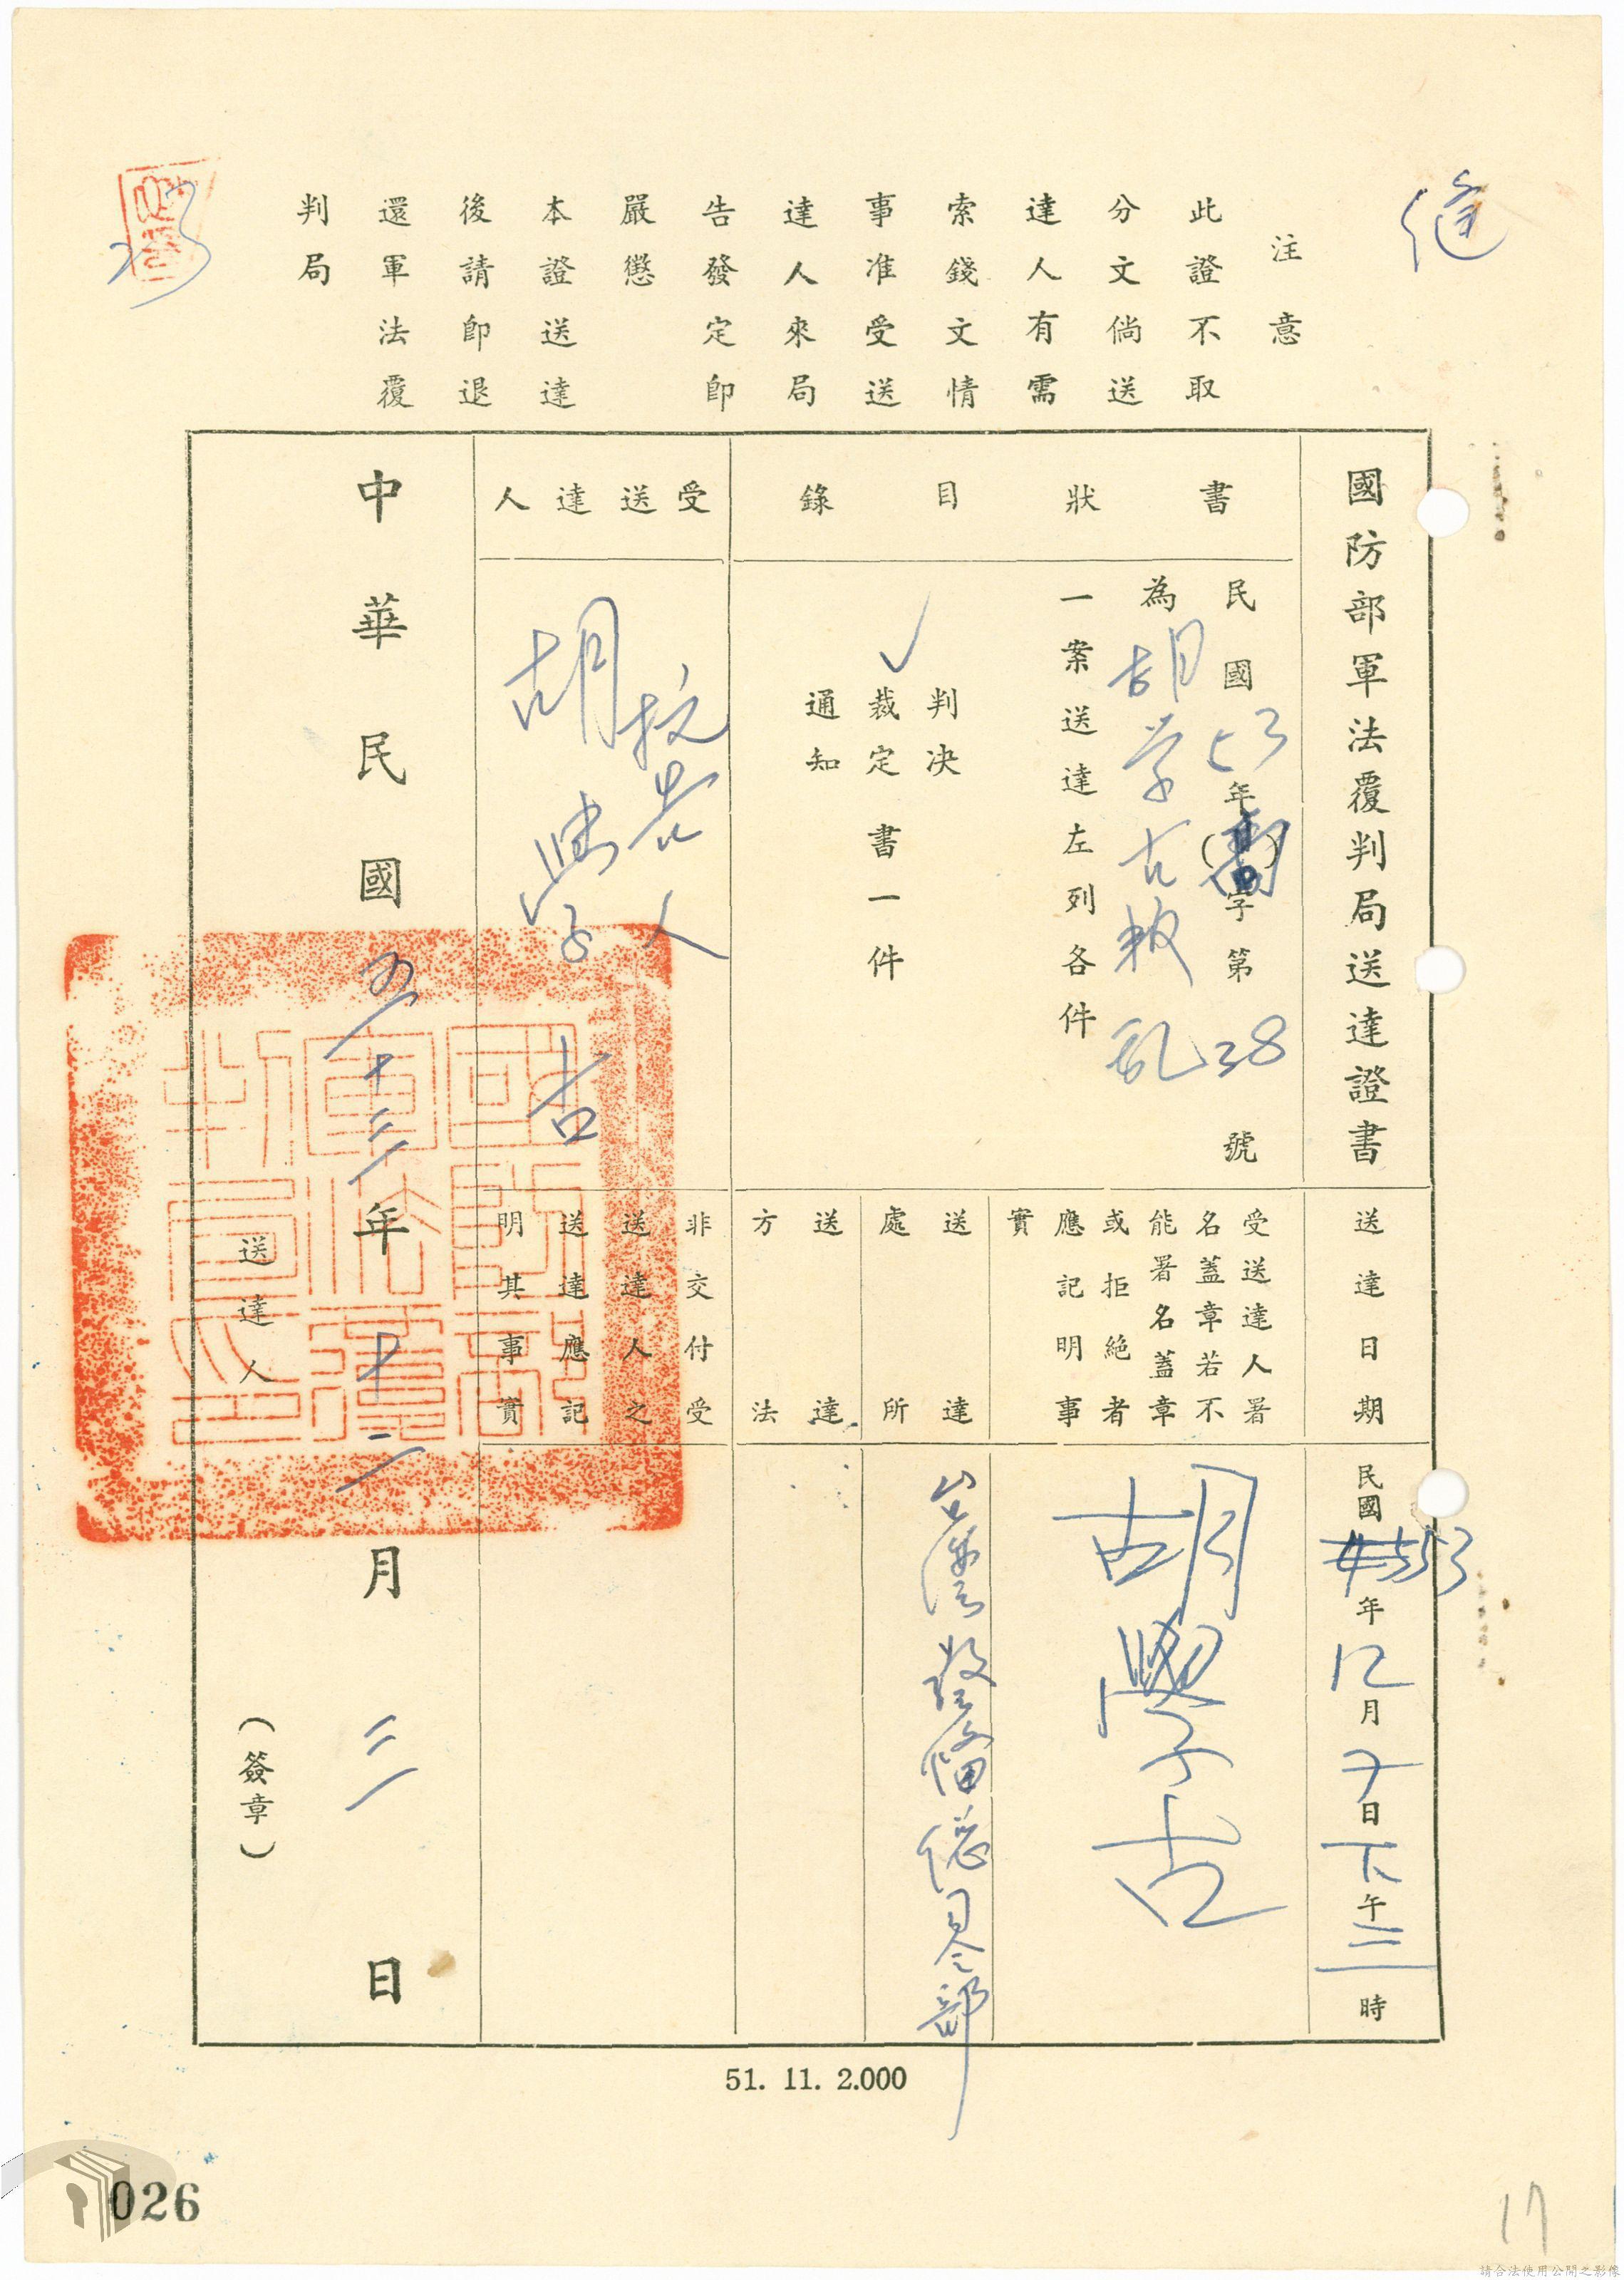 注意
此證不取
分文倘送
達人有需
索錢文情
事准受送
達人來局
告發定卽
嚴懲
本證送達
後請卽退
還軍法覆
判局
國防部軍法覆判局送達證書
書狀目錄
民國53年()字第38號
為胡学古叛乱
一案送達左列各件
判決
✓裁定書一件
通知
受送達人
抗告人
胡學古
送達日期
民國53年12月十日下午三時
受送達人署
名蓋章若不
能署名蓋章
或拒絕者
應記明事
實
胡學古
送達
處所
台灣警備總司令部
送達
方法
非交付受
送達人之
送達應記
明其事實
中華民國五十三年十二月三日
送達人
(簽章)
國防部軍法覆判局印
51. 11. 2.000
026
17
請合法使用公開之影像